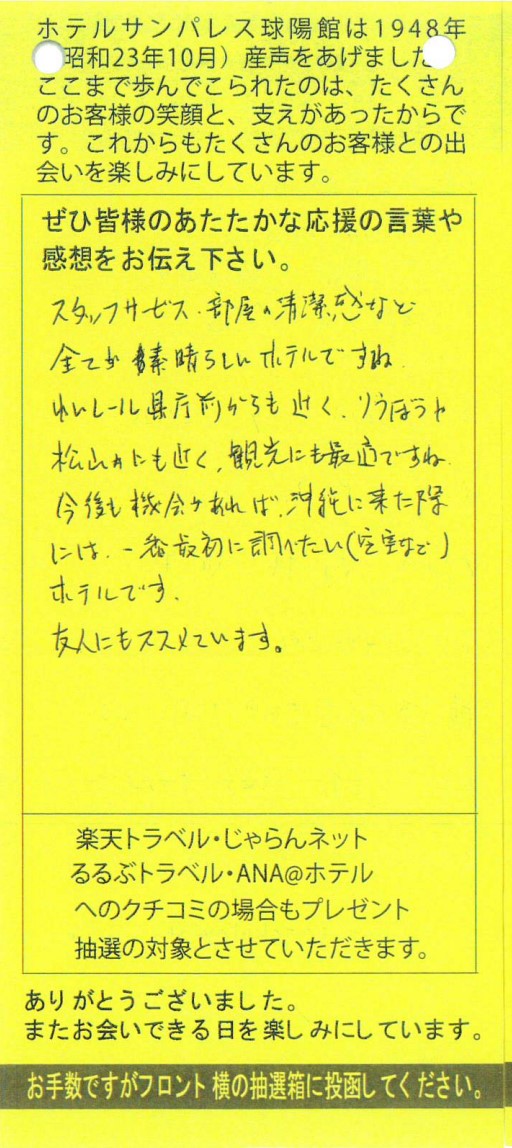 ホテルサンパレス球陽館は1948年
昭和23年10月）産声をあげました
ここまで歩んでこられたのは、たくさん
のお客様の笑顔と、支えがあったからで
す。これからもたくさんのお客様との出
会いを楽しみにしています。
ぜひ皆様のあたたかな応援の言葉や
感想をお伝え下さい。
スタッフサービス・部屋の清潔感など
全てが素晴らしいホテルですね.
ゆいレール県庁前からも近く、りうぼうや
松山カにも近く、観光にも最適ですね.
今後も機会があれば、沖縄に来た際
には、一番最初に調べたい(空室など)
ホテルです.
友人にもススメています。
楽天トラベル・じゃらんネット
るるぶトラベル・ANA@ホテル
へのクチコミの場合もプレゼント
抽選の対象とさせていただきます。
ありがとうございました。
またお会いできる日を楽しみにしています。
お手数ですがフロント横の抽選箱に投函してください。